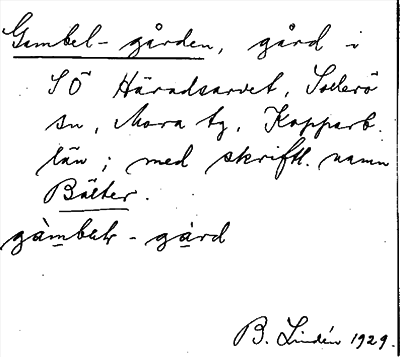 Gambel-gården, gård i
SÖ Häradsarvet, Sollerö
sn, Mora tg, Kopparb.
län; med skriftl. namn
Bälter.
gàmbəl - gàrd
B. Lindén 1929.